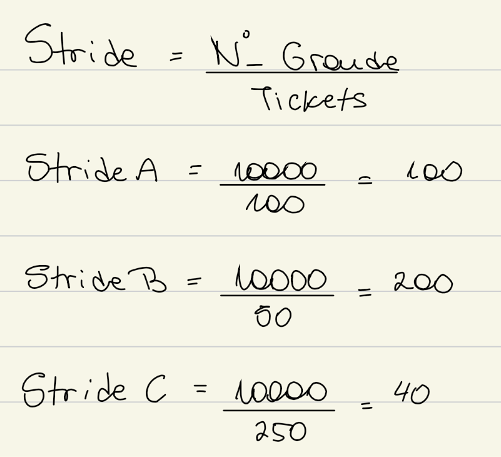 Stride = Nº Grande / Tickets
Stride A = 10000 / 100 = 100
Stride B = 10000 / 50 = 200
Stride C = 10000 / 250 = 40